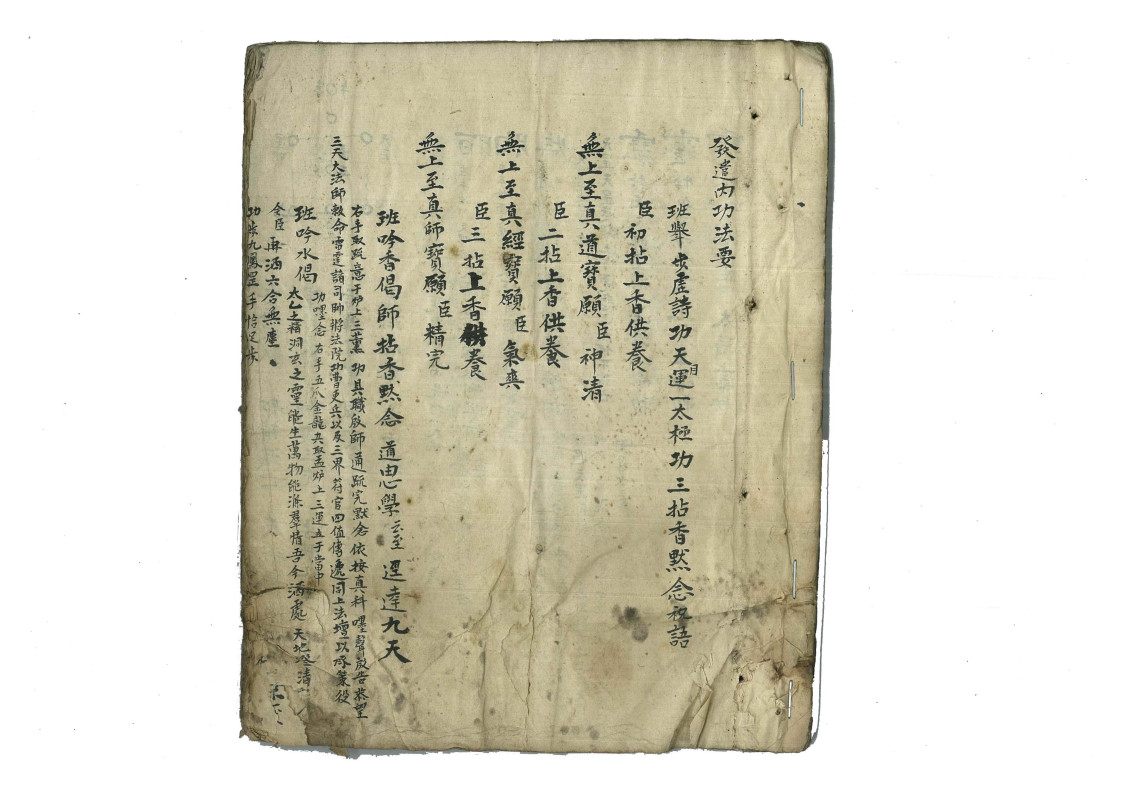 發遣內功法要
班舉步虛詩功天運一太極功三拈香默念祝語
目
臣初拈上香供養
無上至真道寶願臣神清
臣二拈上香供養
無上至真經寶願臣氣爽
臣三拈上香供養
無上至真師寶願臣精完
班吟香偈師拈香默念道由心學云至逕達九天
右手取疏意于炉上三薰功具職啟師通疏完默念依按真科嘿聲啟告恭望
三天大法師敕命雷霆諸司帥將法院功曹吏兵以及三界符官四值傳遞同上法壇以承策役
功嘿念右手五爪金龍夾取盂炉上三運立于當中
班吟水偈
太乙之精洞玄之靈能生萬物能滌羣情吾今洒處天地澄清
令臣再洒六合無塵
功步九鳳罡手